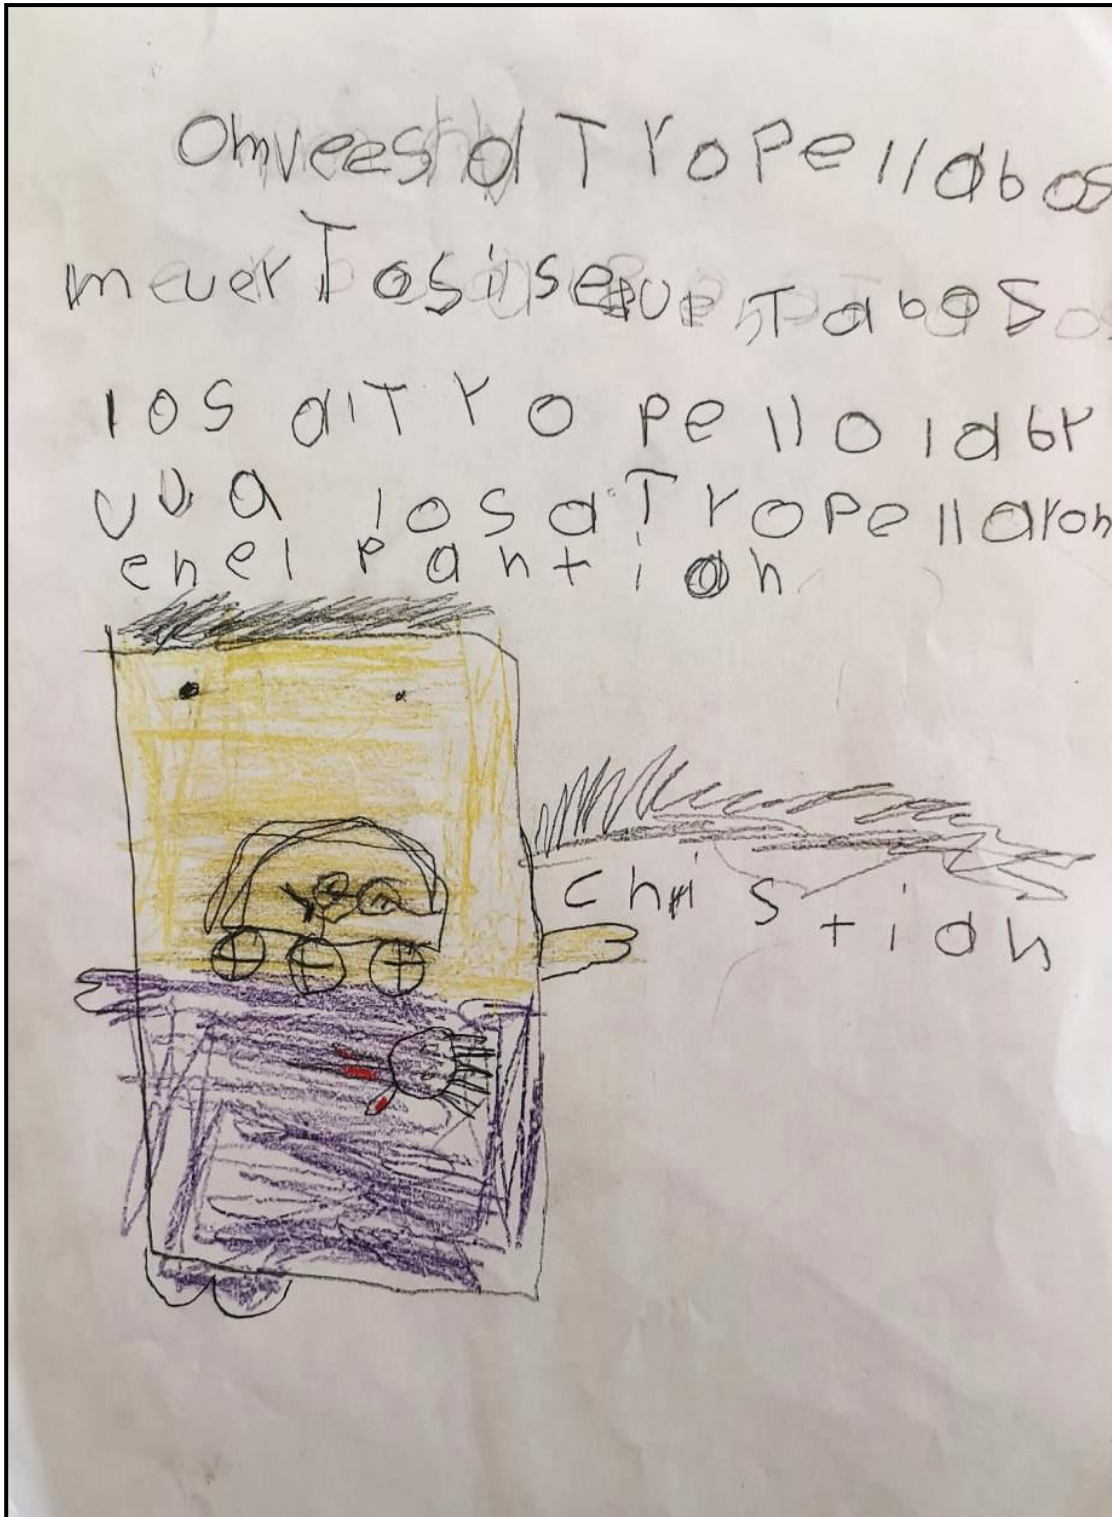 Omvees atropellabos
meuertos i secuestabos
los aitropello labr
uva los atropellaron
enel pantion
Christian